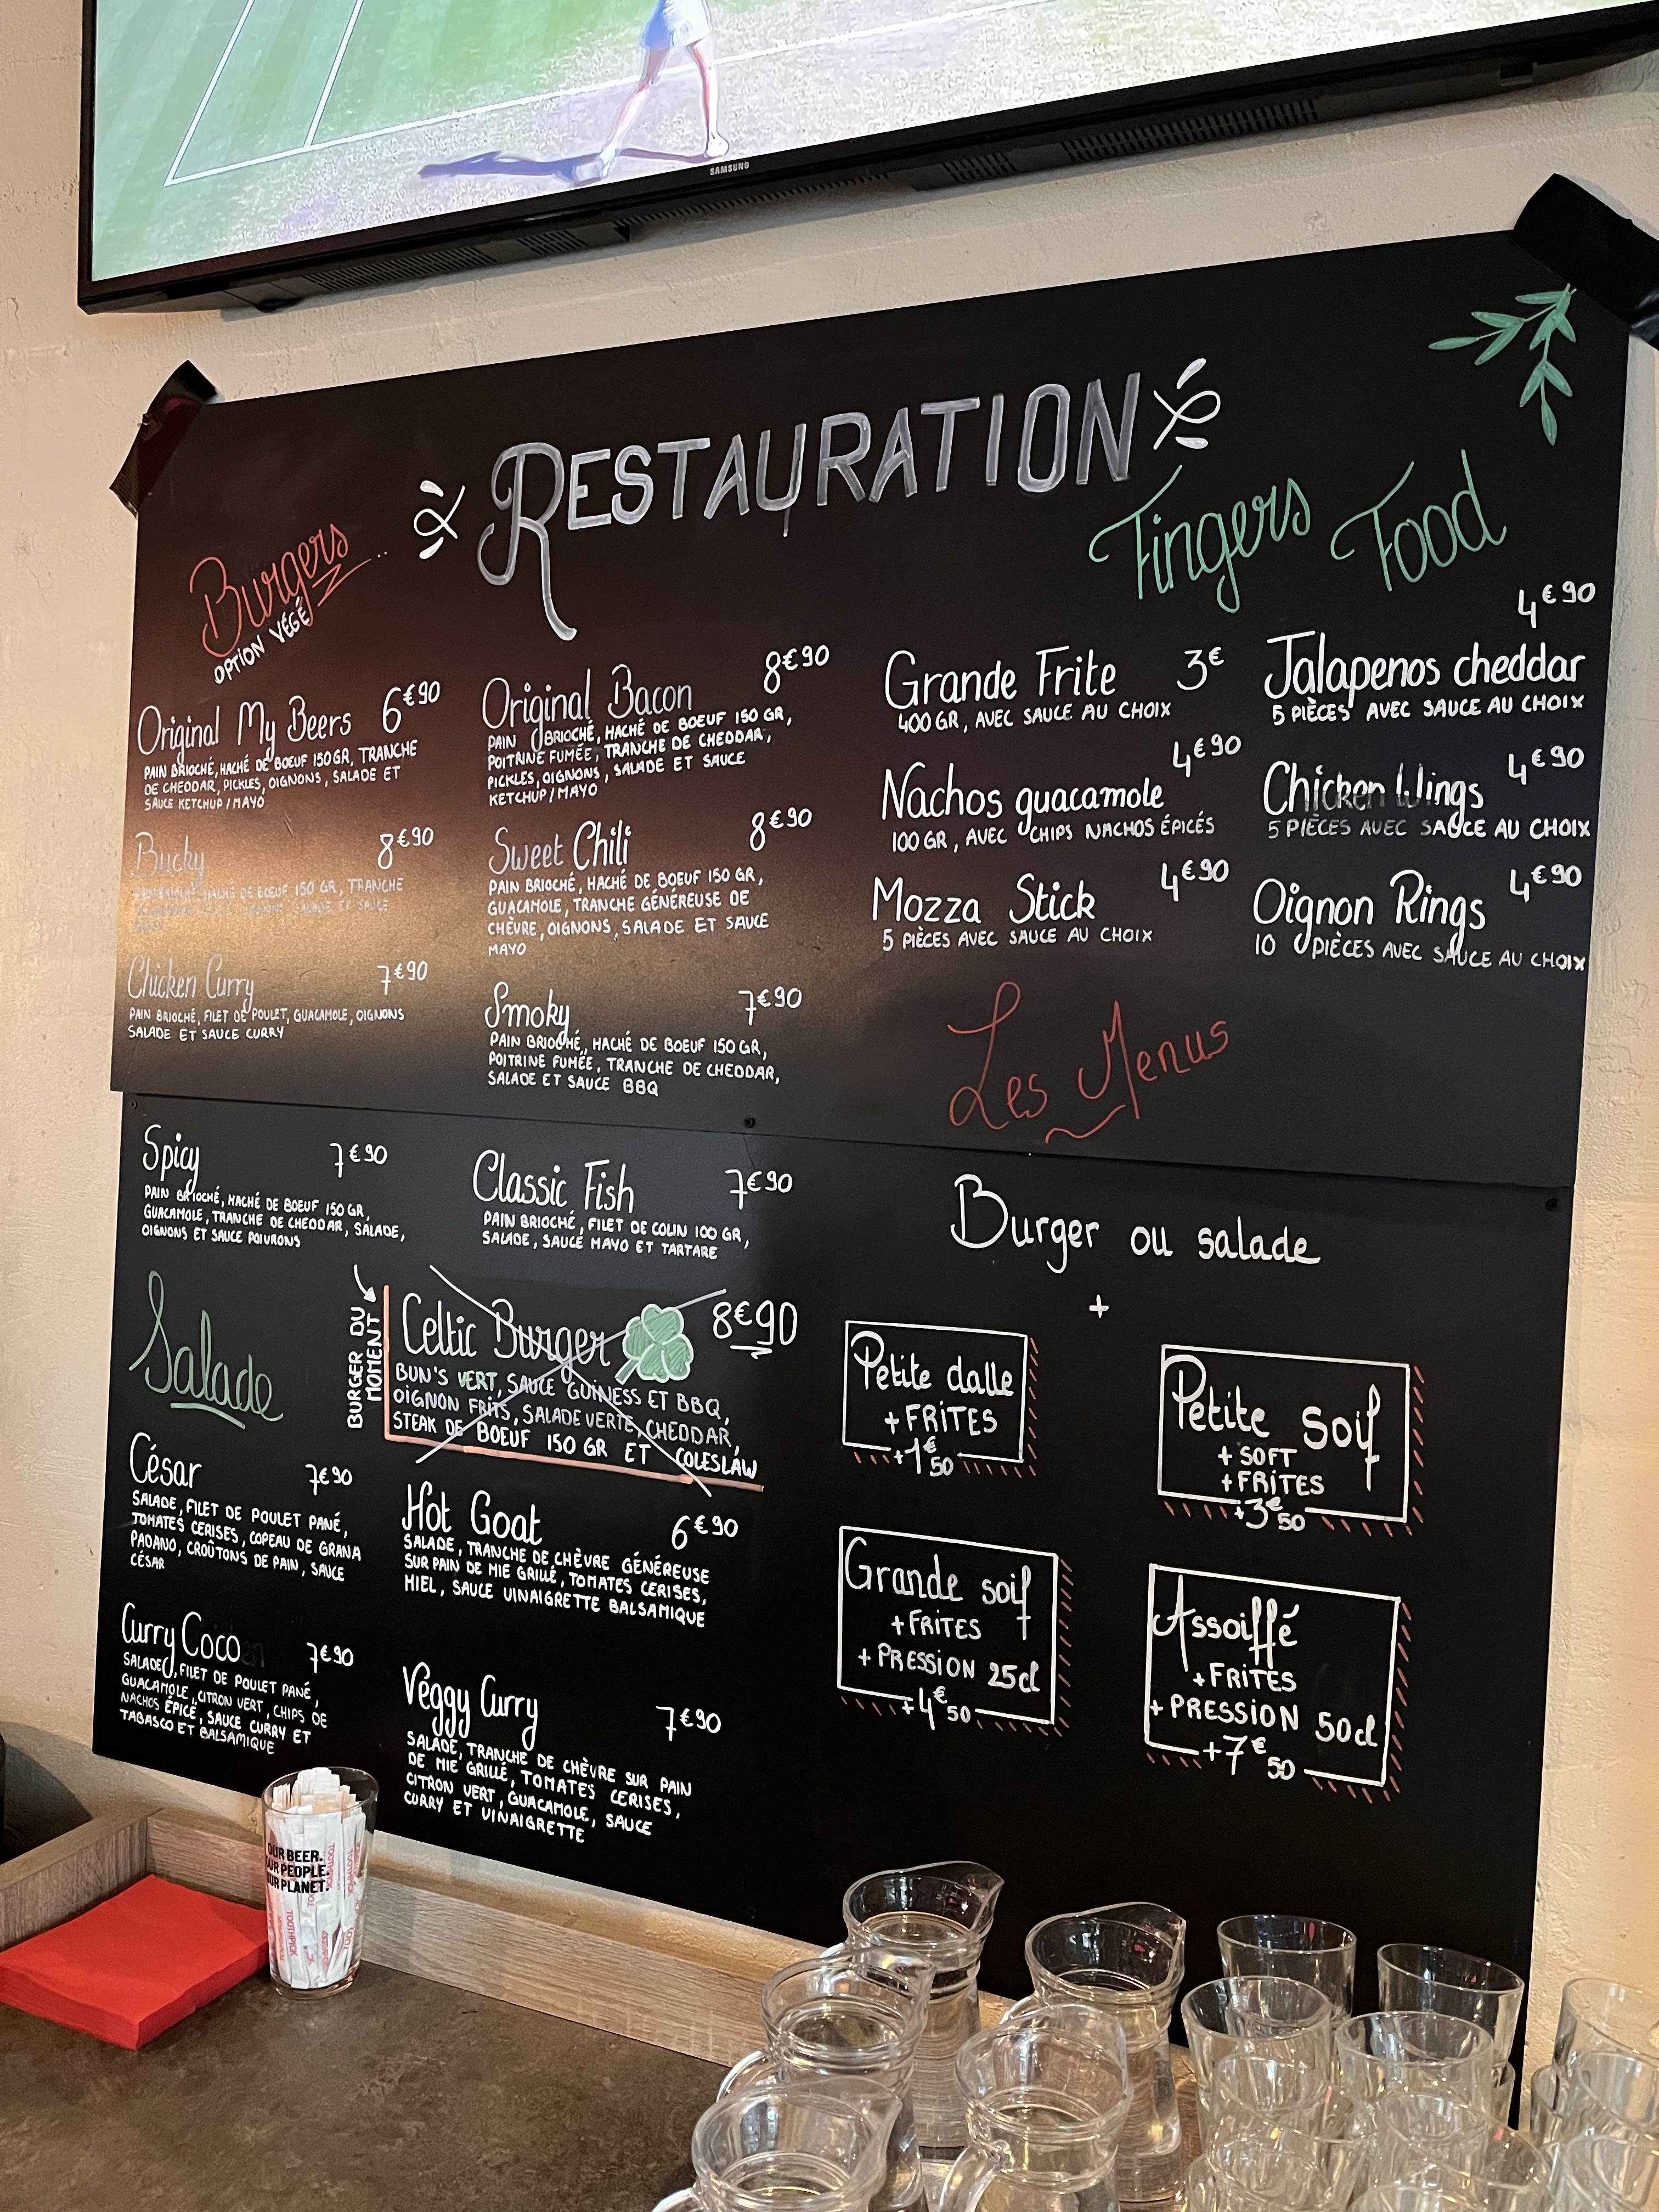 SAMSUNG
RESTAURATION
Burgers...
OPTION VÉGÉ
Original My Beers 6€90
PAIN BRIOCHÉ, HACHÉ DE BOEUF 150GR, TRANCHE
DE CHEDDAR, PICKLES, OIGNONS, SALADE ET
SAUCE KETCHUP/MAYO
Bucky 8€90
PAIN BRIOCHÉ, HACHÉ DE BOEUF 150 GR, TRANCHE
SALADE ET SAUCE
Chicken Curry 7€90
PAIN BRIOCHÉ, FILET DE POULET, GUACAMOLE, OIGNONS
SALADE ET SAUCE CURRY
Original Bacon 8€90
PAIN BRIOCHÉ, HACHÉ DE BOEUF 150 GR,
POITRINE FUMÉE, TRANCHE DE CHEDDAR,
PICKLES, OIGNONS, SALADE ET SAUCE
KETCHUP/MAYO
Sweet Chili 8€90
PAIN BRIOCHÉ, HACHÉ DE BOEUF 150 GR,
GUACAMOLE, TRANCHE GÉNÉREUSE DE
CHÈVRE, OIGNONS, SALADE ET SAUCE
MAYO
Smoky 7€90
PAIN BRIOCHÉ, HACHÉ DE BOEUF 150 GR,
POITRINE FUMÉE, TRANCHE DE CHEDDAR,
SALADE ET SAUCE BBQ
Spicy 7€90
PAIN BRIOCHÉ, HACHÉ DE BOEUF 150 GR,
GUACAMOLE, TRANCHE DE CHEDDAR, SALADE,
OIGNONS ET SAUCE POIVRONS
Classic Fish 7€90
PAIN BRIOCHÉ, FILET DE COLIN 100 GR,
SALADE, SAUCE MAYO ET TARTARE
BURGER DU
MOMENT
Celtic Burger 8€90
BUN'S VERT, SAUCE GUINESS ET BBQ,
OIGNON FRITS, SALADE VERTE, CHEDDAR,
STEAK DE BOEUF 150 GR ET COLESLAW
Salade
César 7€90
SALADE, FILET DE POULET PANÉ,
TOMATES CERISES, COPEAU DE GRANA
PADANO, CROÛTONS DE PAIN, SAUCE
CÉSAR
Curry Coco 7€90
SALADE, FILET DE POULET PANÉ,
GUACAMOLE, CITRON VERT, CHIPS DE
NACHOS ÉPICÉ, SAUCE CURRY ET
TABASCO ET BALSAMIQUE
Hot Goat 6€90
SALADE, TRANCHE DE CHÈVRE GÉNÉREUSE
SUR PAIN DE MIE GRILLÉ, TOMATES CERISES,
MIEL, SAUCE VINAIGRETTE BALSAMIQUE
Veggy Curry 7€90
SALADE, TRANCHE DE CHÈVRE SUR PAIN
DE MIE GRILLÉ, TOMATES CERISES,
CITRON VERT, GUACAMOLE, SAUCE
CURRY ET VINAIGRETTE
Fingers Food
Grande Frite 3€
400 GR, AVEC SAUCE AU CHOIX
Nachos guacamole 4€90
100 GR, AVEC CHIPS NACHOS ÉPICÉS
Mozza Stick 4€90
5 PIÈCES AVEC SAUCE AU CHOIX
4€90
Jalapenos cheddar
5 PIÈCES AVEC SAUCE AU CHOIX
Chicken Wings 4€90
5 PIÈCES AVEC SAUCE AU CHOIX
Oignon Rings 4€90
10 PIÈCES AVEC SAUCE AU CHOIX
Les Menus
Burger ou salade
+
Petite dalle
+ FRITES
+1€50
Petite soif
+ SOFT
+ FRITES
+3€50
Grande soif
+ FRITES
+ PRESSION 25cl
+4€50
Assoiffé
+ FRITES
+ PRESSION 50cl
+7€50
OUR BEER.
OUR PEOPLE.
OUR PLANET.
TOOTHPICK